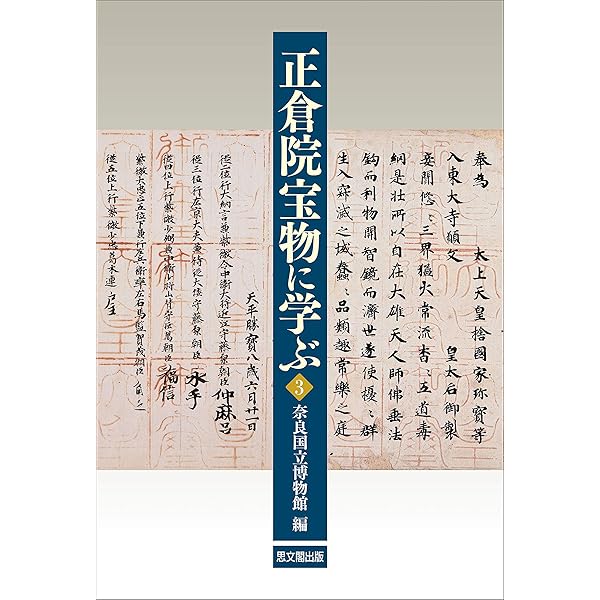 正倉院宝物に学ぶ
3
奈良国立博物館 編
思文閣出版
奉為 太上天皇捨國家珎寳等
入東大寺願文 皇太后御製
妾聞悠々三界猛火常流杳々五道毒
網是壮所以自在大雄天人師佛垂法
鈎而利物開智鏡而濟世遂使擾々群
生入寂滅之域蠢々品類趣常樂之庭
天平勝寳八歳六月廿一日
従二位行大納言兼紫微令中衛大将近江守藤原朝臣 仲麻呂
従三位行左京大夫兼侍従大倭守藤原朝臣 永手
従四位上行紫微少弼兼中衛少将山背守巨萬朝臣 福信
紫微大忠正五位下兼行左兵衛率左右馬監賀茂朝臣
従五位上行紫微少忠葛木連 戸主